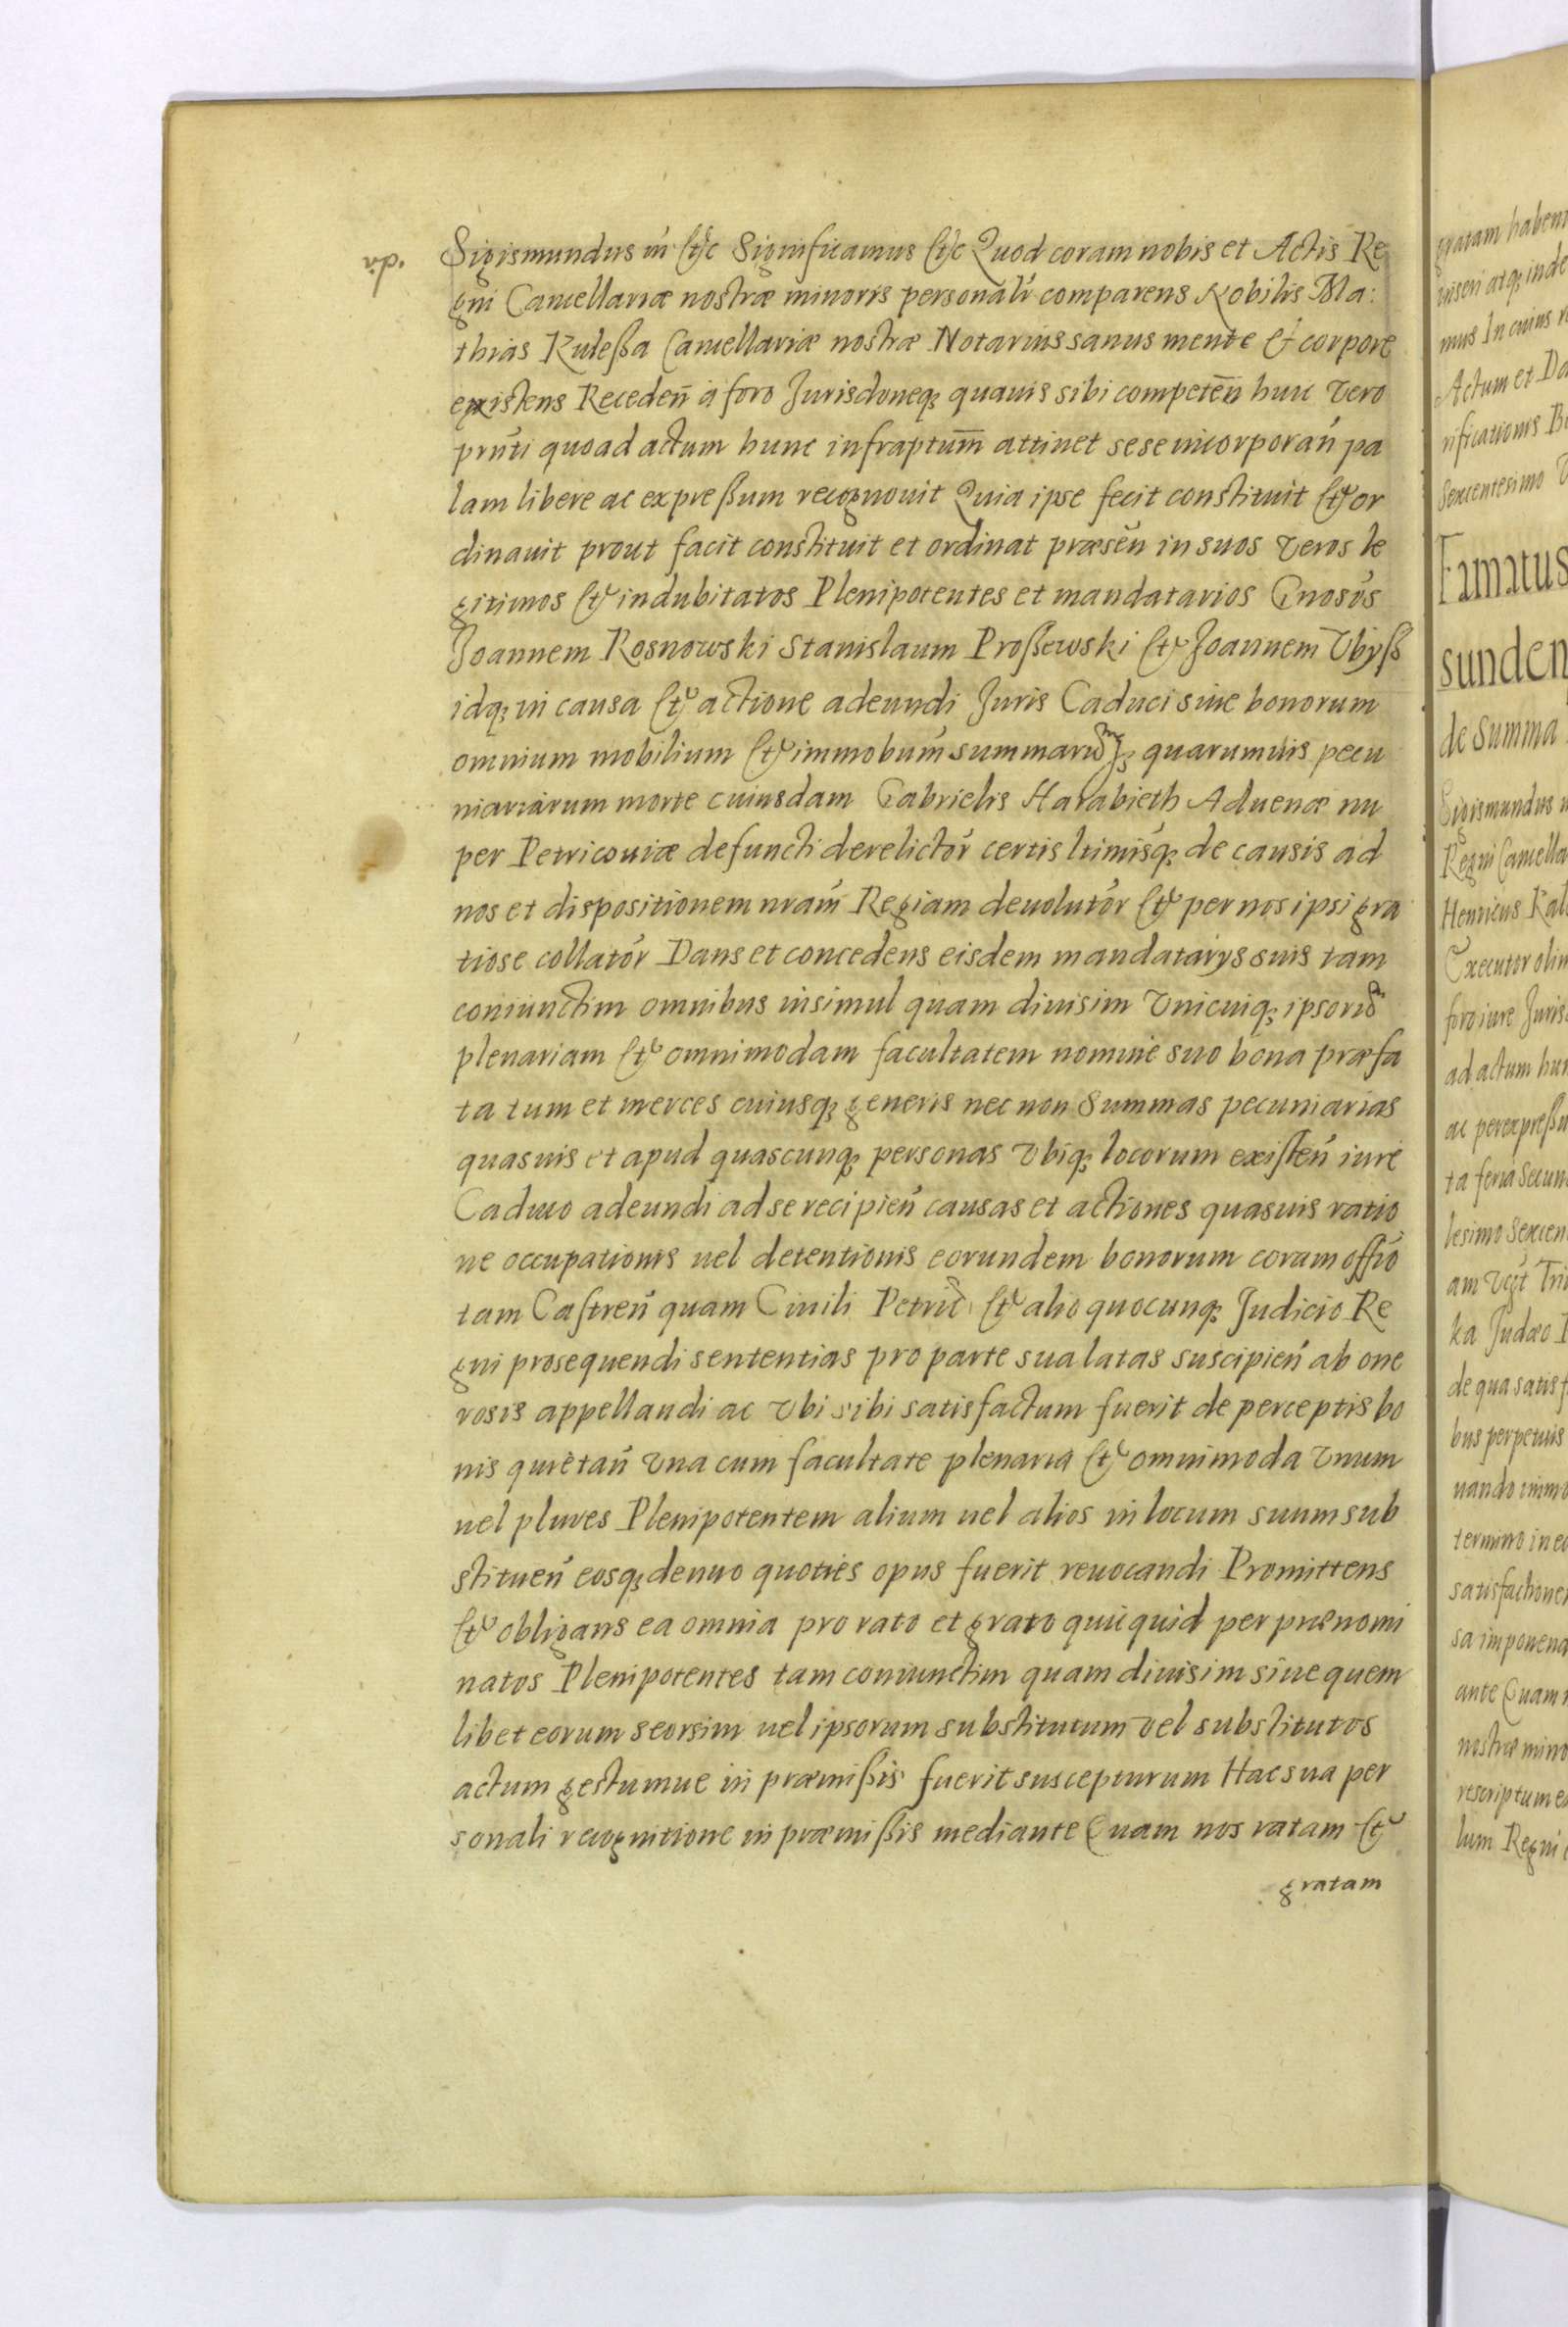 Sigismundus in &c Significamus &c Quod coram nobis et Actis Re
gni Cancellariæ nostræ minoris personalr comparens Nobilis Ma:
thias Kulessa Cancellariæ nostræ Notarius sanus mente & corpore
existens Receden a foro Jurisdoneq; quavis sibi competen huic vero
prnti quoad actum hunc infraptum attinet sese incorporan pa
lam libere ac expressum recognouit Quia ipse fecit constituit & or
dinauit prout facit constituit et ordinat præsen in suos veros le
gitimos & indubitatos Plenipotentes et mandatarios Gnosos
Joannem Rosnowski Stanislaum Prossewski & Joannem Vbyss
idq; in causa & actione adeundi Juris Caduci siue bonorum
omnium mobilium & immobum summarumq; quarumuis pecu
niariarum morte cuiusdam Gabrielis Harabieth Aduenæ nu
per Petricouiæ defuncti derelictor certis ltimisq; de causis ad
nos et dispositionem nram Regiam deuolutor & per nos ipsi gra
tiose collator Dans et concedens eisdem mandatarys suis tam
coniunctim omnibus insimul quam diuisim Vnicuiq; ipsorum
plenariam & omnimodam facultatem nomine suo bona præfa
ta tum et merces cuiusq; generis nec non Summas pecuniarias
quasuis et apud quascunq; personas vbiq; locorum existen iure
Caduco adeundi ad se recipien causas et actiones quasuis ratio
ne occupationis uel detentionis eorundem bonorum coram offio
tam Castren quam Ciuili Petric & alio quocunq; Judicio Re
gni prosequendi sententias pro parte sua latas suscipien ab one
rosis appellandi ac vbi sibi satisfactum fuerit de perceptis bo
nis quietan vna cum facultate plenaria & omnimoda vnum
uel plures Plenipotentem alium uel alios in locum suum sub
stituen eosq; denuo quoties opus fuerit reuocandi Promittens
& obligans ea omnia pro rato et grato quicquid per prænomi
natos Plenipotentes tam coniunctim quam diuisim siue quem
libet eorum seorsim uel ipsorum substitutum vel substitutos
actum gestumue in præmissis fuerit suscepturum Hac sua per
sonali recognitione in præmissis mediante Quam nos ratam &
gratam
gratam haben
mus In cuius
Actum et Da
rificationis
Sexcentesimo
Famatus
sunden
de Summa
Sigismundus
Regni Cancella
Henricus Kal
Executor olim
foro iure Juris
ad actum hun
ac perexpressu
ta feria Secun
lesimo Sexcen
am
ka Judæo
de qua satisf
bus perpetuis
uando immo
termino in eo
satisfactione
sa imponend
ante Quam
nostræ mino
rescriptum
lum Regni